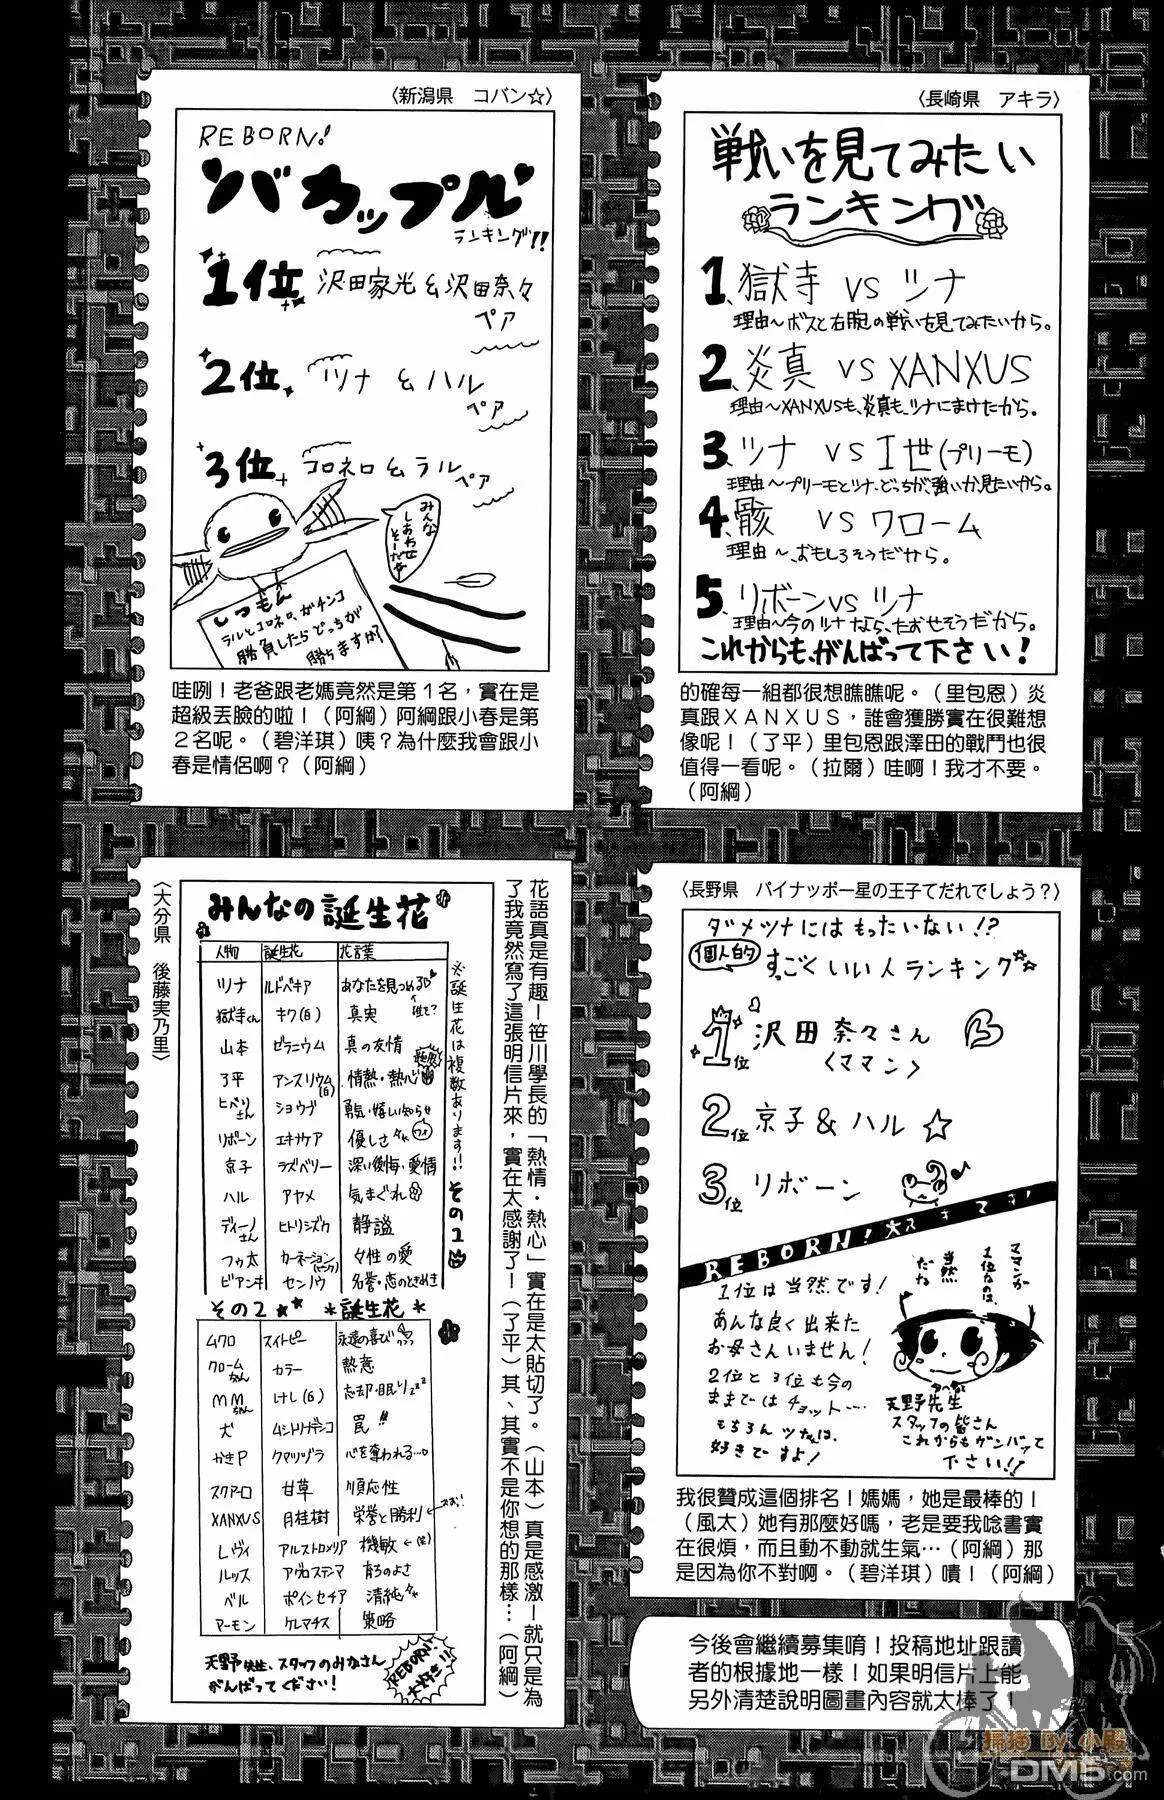 〈長崎県　アキラ〉
戦いを見てみたい
ランキング
1、獄寺 VS ツナ
理由〜ボスと右腕の戦いを見てみたいから。
2、炎真 VS XANXUS
理由〜XANXUSも、炎真も、ツナにまけたから。
3、ツナ VS I世(プリーモ)
理由〜プリーモとツナ、どっちが、強いか見たいから。
4、骸 VS クローム
理由〜、おもしろそうだから。
5、リボーンVS ツナ
理由〜今のツナなら、たおせそうだから。
これからも、がんばって下さい!
的確每一組都很想瞧瞧呢。（里包恩）炎
真跟XANXUS，誰會獲勝實在很難想
像呢！（了平）里包恩跟澤田的戰鬥也很
值得一看呢。（拉爾）哇啊！我才不要。
（阿綱）
〈新潟県　コバン☆〉
REBORN!
バカップル
ランキング!!
1位 沢田家光&沢田奈々
ペア
2位 ツナ & ハル
ペア
3位 コロネロ & ラル
ペア
みんな
しあわせ
そーだな
しつもん
ラルとコロネロ、がチンコ
勝負したらどっちが
勝ちますか?
哇咧！老爸跟老媽竟然是第１名，實在是
超級丟臉的啦！（阿綱）阿綱跟小春是第
２名呢。（碧洋琪）咦？為什麼我會跟小
春是情侶啊？（阿綱）
〈長野県　パイナッポー星の王子てだれでしょう？〉
ダメツナにはもったいない!?
個人的
すごくいい人ランキング☆
1位 沢田奈々さん
〈ママン〉
2位 京子&ハル☆
3位 リボーン
REBORN!大スキです!
1位は当然です!
あんな良く出来た
お母さんいません!
2位と3位も今の
ままではチョット…
もちろんツナは、
好きですよ!
ママンが
1位なのは、
当然
だな
天野先生
スタッフの皆さん
これからもガンバッて
下さい!!
我很贊成這個排名！媽媽，她是最棒的！
（風太）她有那麼好嗎，老是要我唸書實
在很煩，而且動不動就生氣…（阿綱）那
是因為你不對啊。（碧洋琪）嘖！（阿綱）
花語真是有趣！笹川學長的「熱情・熱心」實在是太貼切了。（山本）真是感激！就只是為
了我竟然寫了這張明信片來，實在太感謝了！（了平）其、其實不是你想的那樣…（阿綱）
みんなの誕生花
人物 誕生花 花言葉
ツナ ルドベキア あなたを見つめる
獄寺くん キク(白) 真実
山本 ゼラニウム 真の友情
了平 アンスリウム(白) 情熱・熱心
ヒバリさん ショウブ 勇気・嬉しい知らせ
リボーン エキナケア 優しさ
京子 ラズベリー 深い後悔・愛情
ハル アヤメ 気まぐれ
ディーノさん ヒトリシズカ 静謐
フゥ太 カーネーション(ピンク) 女性の愛
ビアンキ センノウ 名誉・恋のときめき
※誕生花は複数あります!! その1
その2 ＊誕生花＊
ムクロ スイトピー 永遠の喜び
クロームちゃん カラー 熱意
MMちゃん けし(白) 忘却・眠り zzz
犬 ムシトリナデシコ 罠!!
かきP クマツヅラ 心を奪われる…
スクアーロ 甘草 順応性
XANXUS 月桂樹 栄誉と勝利
レヴィ アルストロメリア 機敏 ←(笑)
ルッス アヴェステマ 育ちのよさ
ベル ポインセチア 清純
マーモン クレマチス 策略
天野先生、スタッフのみなさん
がんばってください!
REBORN!
大好き!!
〈大分県　後藤実乃里〉
今後會繼續募集唷！投稿地址跟讀
者的根據地一樣！如果明信片上能
另外清楚說明圖畫內容就太棒了！
掃描 BY 小馬
DM5.com